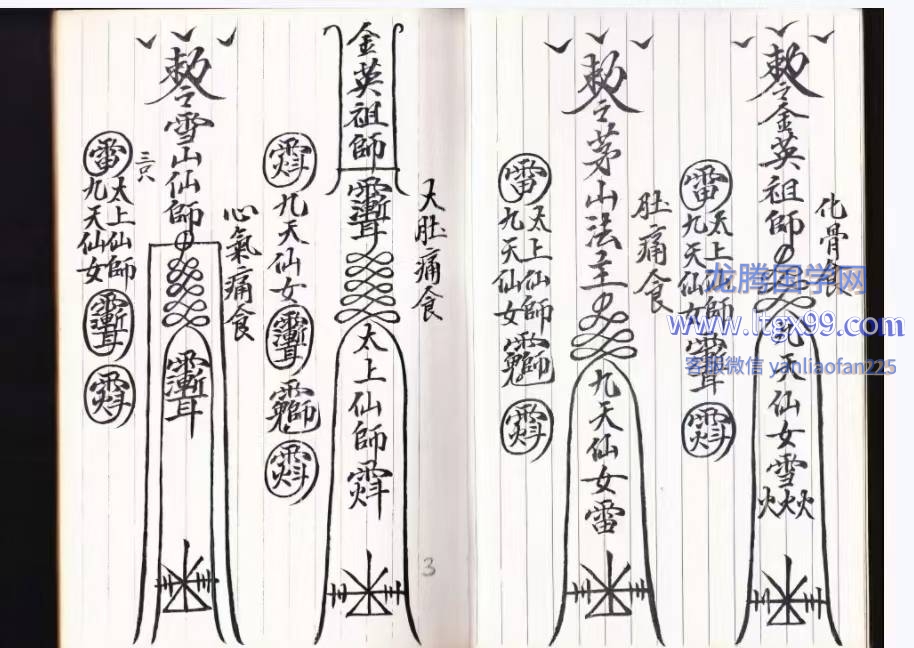 化骨食
勅令金英祖師
九天仙女雪
火火火
雷
太上仙師
九天仙女
肚痛食
勅令茅山法主
九天仙女雷
雷
太上仙師
九天仙女
大肚痛食
金英祖師
太上仙師
九天仙女
3
心氣痛食
勅令雪山仙師
三只
雷
太上仙師
九天仙女
龙腾国学网
www.ltgx99.com
客服微信 yanliaofan225